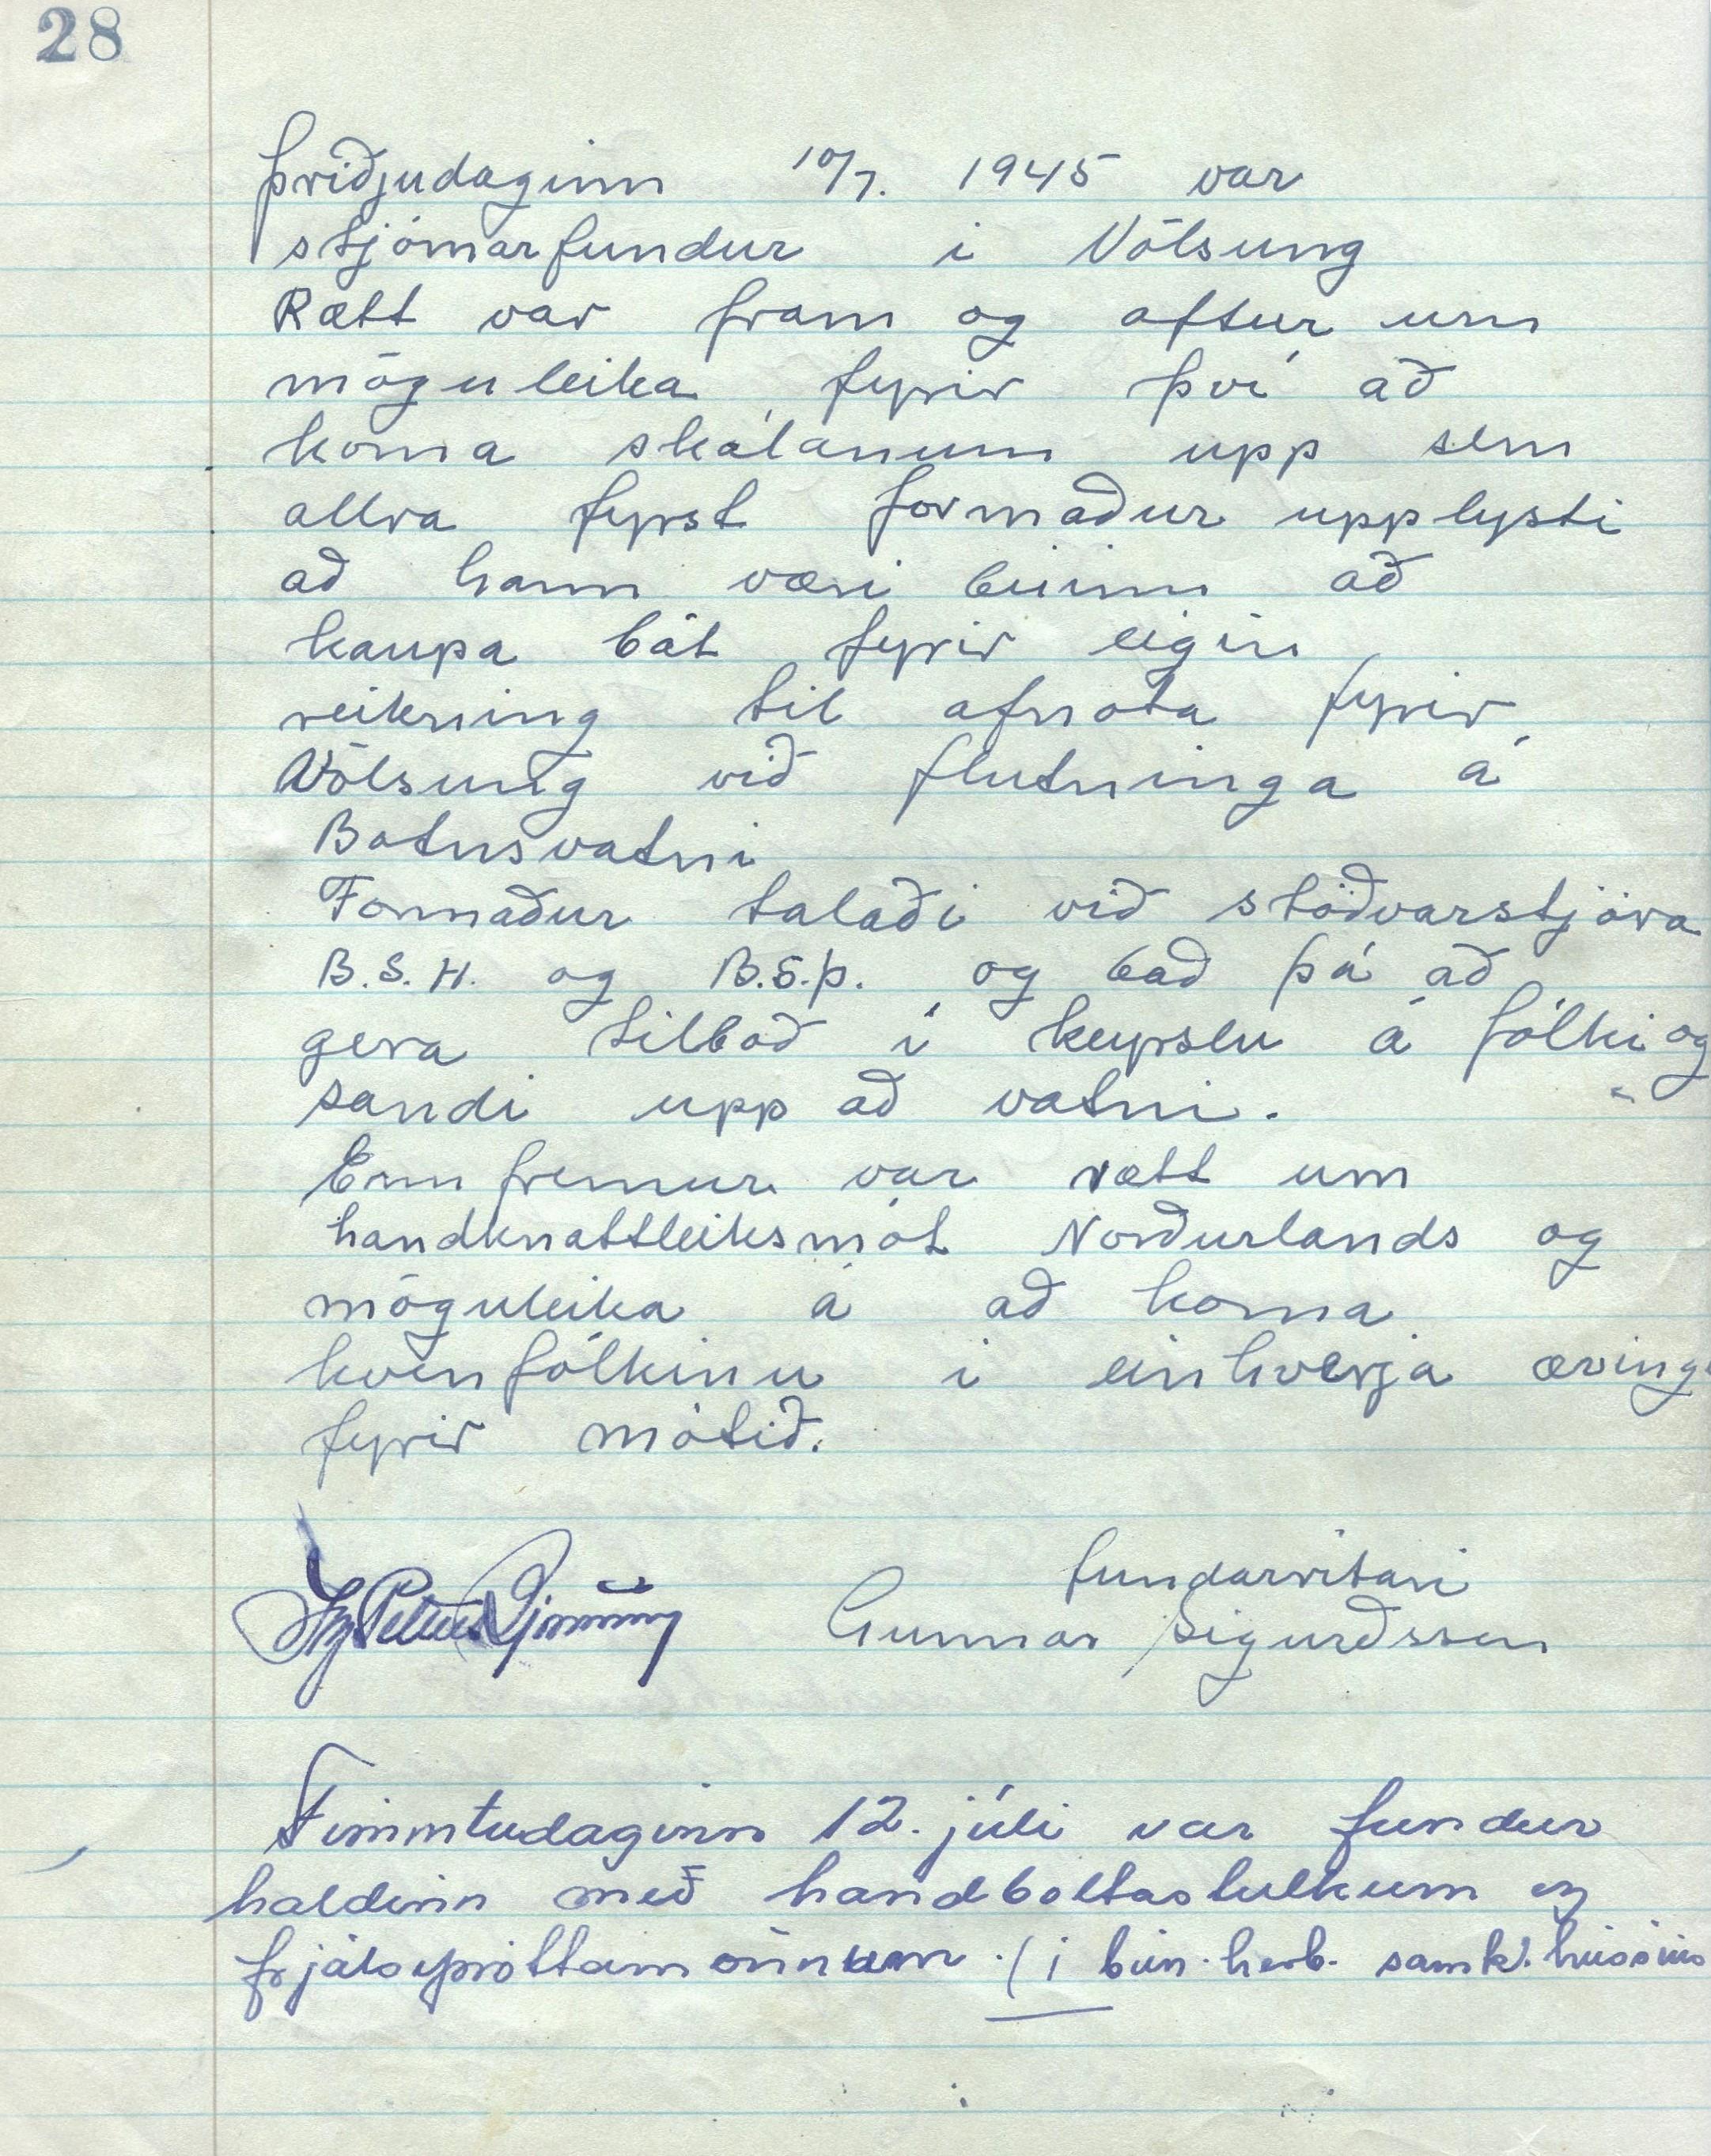 28
Þriðjudaginn 10/7. 1945 var
stjórnarfundur í Völsung
Rætt var fram og aftur um
möguleika fyrir því að
koma skálanum upp sem
allra fyrst formaður upplysti
að hann væri búinn að
kaupa bát fyrir eigin
reikning til afnota fyrir
Völsung við flutninga á
Botnsvatni
Formaður talaði við stöðvarstjóra
B.S.H. og B.S.Þ. og bað þá að
gera tilboð í keyrslu á fólki og
sandi upp að vatni.
Enn fremur var rætt um
handknattleiksmót Norðurlands og
möguleika á að koma
kvenfólkinu í einhverja æving
fyrir mótið.
fundarritari
Gunnar Sigurðsson
Fimmtudaginn 12. júlí var fundur
haldinn með handboltastulkum og
frjálsíþróttamönnum. (í bún. herb. samk. hússins